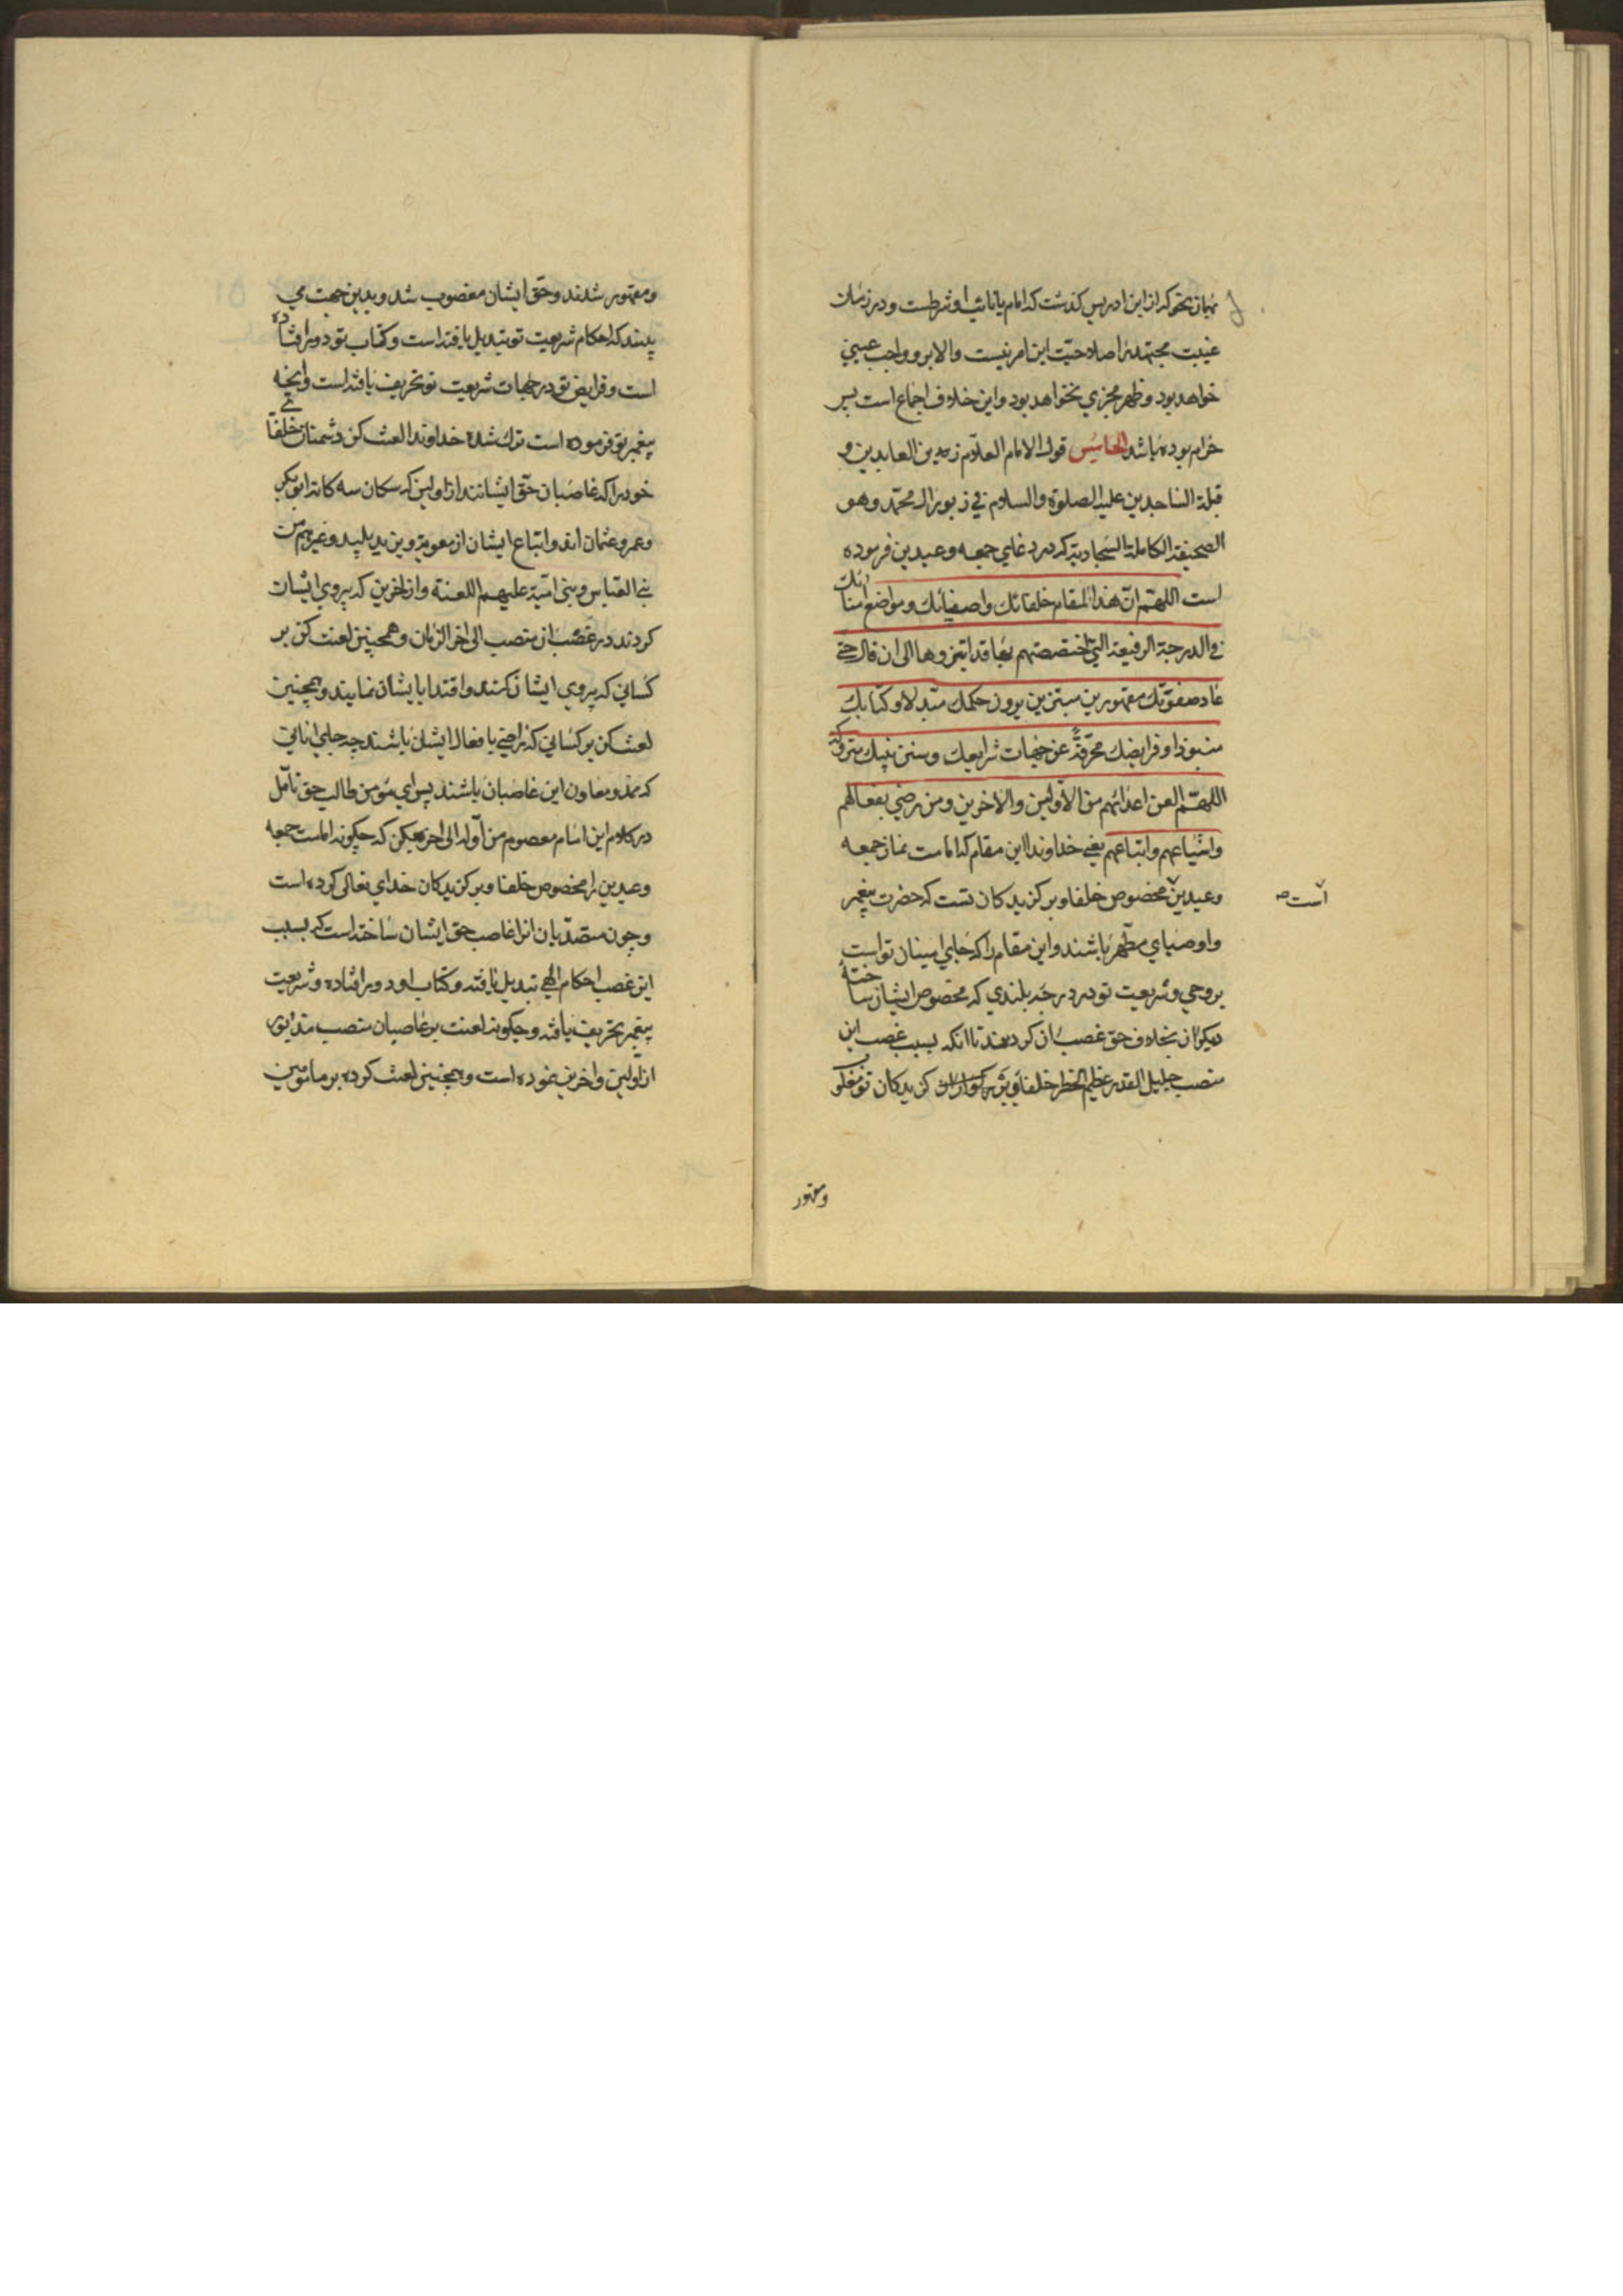 بهمان نحو که از ابن ادریس گذشت که امام یا نایب او شرطست و در زمان
غیبت مجتهد را صلاحیّت این امر نیست والا بر او واجب عینی
خواهد بود و ظهر مجزي نخواهد بود و این خلاف اجماع است پس
حرام بوده باشد الخامس قول الامام العلّام زین العابدین و
قبلة الساجدین علیه الصلوة والسلام في زبور آل محمّد وهو
الصحیفة الکاملة السّجادیّة که در دعاي جمعه وعیدین فرموده
است اللهمّ انّ هذا المقام خلفائك واصفیائك ومواضع امنائك
في الدرجة الرفیعة التي اختصصتهم بها قد ابتزوها الی ان قال حتی
عاد صفوتك مقهورین مبتزین یرون حکمك مبّدلا و کتابك
منبوذا وفرایضك محرّفة عن جهات شرایعك وسنن نبیك متروکة
اللهمّ العن اعدائهم من الاوّلین والاخرین ومن رضي بفعالهم
واشیاعهم واتباعهم یعني خداوندا این مقام که امامت نماز جمعه
وعیدین مخصوص خلفا وبرکزیدکان تست که حضرت پیغمبر
است
واوصیاي مطّهر باشند واین مقام را که جاي امینان تو است
بروحي وشریعت تو در درجه بلندي که مخصوص ایشان ساختهٔ
دیکران بخلاف حق غصب ان کردهند تا انکه بسبب غصب این
منصب جلیل القدر عظیم الخطر خلفا و کزیدکان تو مغلوب
ومقهور
ومقهور شدند وحق ایشان مغصوب شد وبدین جهت می
بینند که احکام شریعت تو تبدیل یافته است وکتاب تو دور افتاده
است وفرایض تو در جهات شریعت تو تحریف یافته است وانچه
پیغمبر تو فرموده است ترك شده خداوندا لعنت کن دشمنان خلفاي
خود را که غاصبان حق ایشانند از اولین که سکان سه کانه ابوبکر
وعمر وعثمان اند واتباع ایشان از معویة ویزید پلید وغیرهم من
بني العباس وبنی امیّة علیهم اللعنة واز اخرین که پیروي ایشان
کردند در غصب ان منصب الی اخر الزمان وهمچنین لعنت کن بر
کساني که پیروي ایشان کنند واقتدا بایشان نمایند وهمچنین
لعنت کن بر کساني که راضي بافعال ایشان باشند چه جاي اناني
که ممد ومعاون این غاصبان باشند پس اي مؤمن طالب حق تامّل
در کلام این امام معصوم من اوّله الی اخره بکن که چکونه امامت جمعه
وعیدین را مخصوص خلفا وبرکزیدکان خداي تعالی کرده است
وچون متصدّیان انرا غاصب حق ایشان ساخته است که بسبب
این غصب احکام الهي تبدیل یافته وکتاب او دور افتاده وشریعت
پیغمبر تحریف یافته وچکونه لعنت بر غاصبان منصب مذکور
از اوّلین واخرین نموده است وهمچنین لعنت کرده بر مامومین